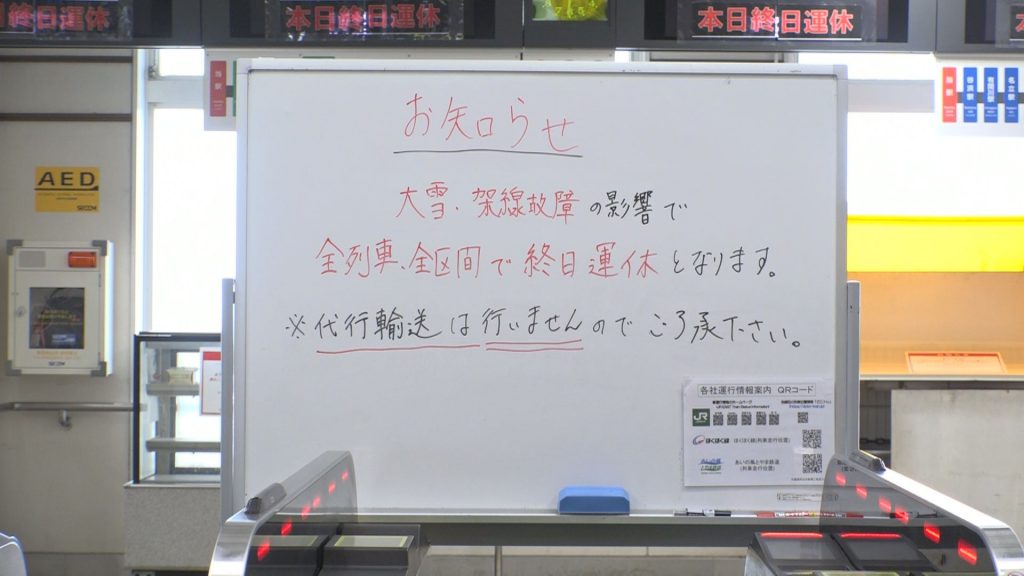 本日終日運休
本日終日運休
本日終日運休
AED
SECOM
お知らせ
大雪、架線故障の影響で
全列車、全区間で終日運休となります。
※代行輸送は行いませんのでご了承下さい。
各社運行情報案内 QRコード
JR
ほくほく線
ほくほく線(列車走行位置)
あいの風とやま鉄道
(列車走行位置)
SECOM